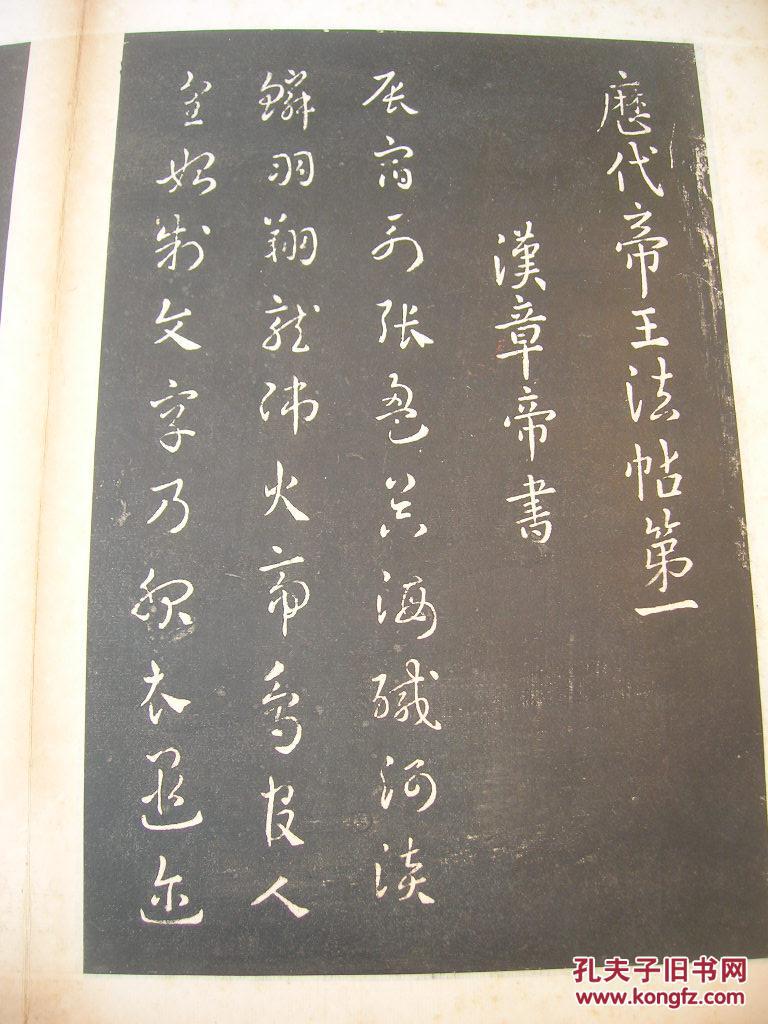 歷代帝王法帖第一
漢章帝書
辰宿列張盈昃海鹹河淡
鱗羽翔龍師火帝鳥官人
皇始制文字乃服衣遐迩
孔夫子旧书网
www.kongfz.com